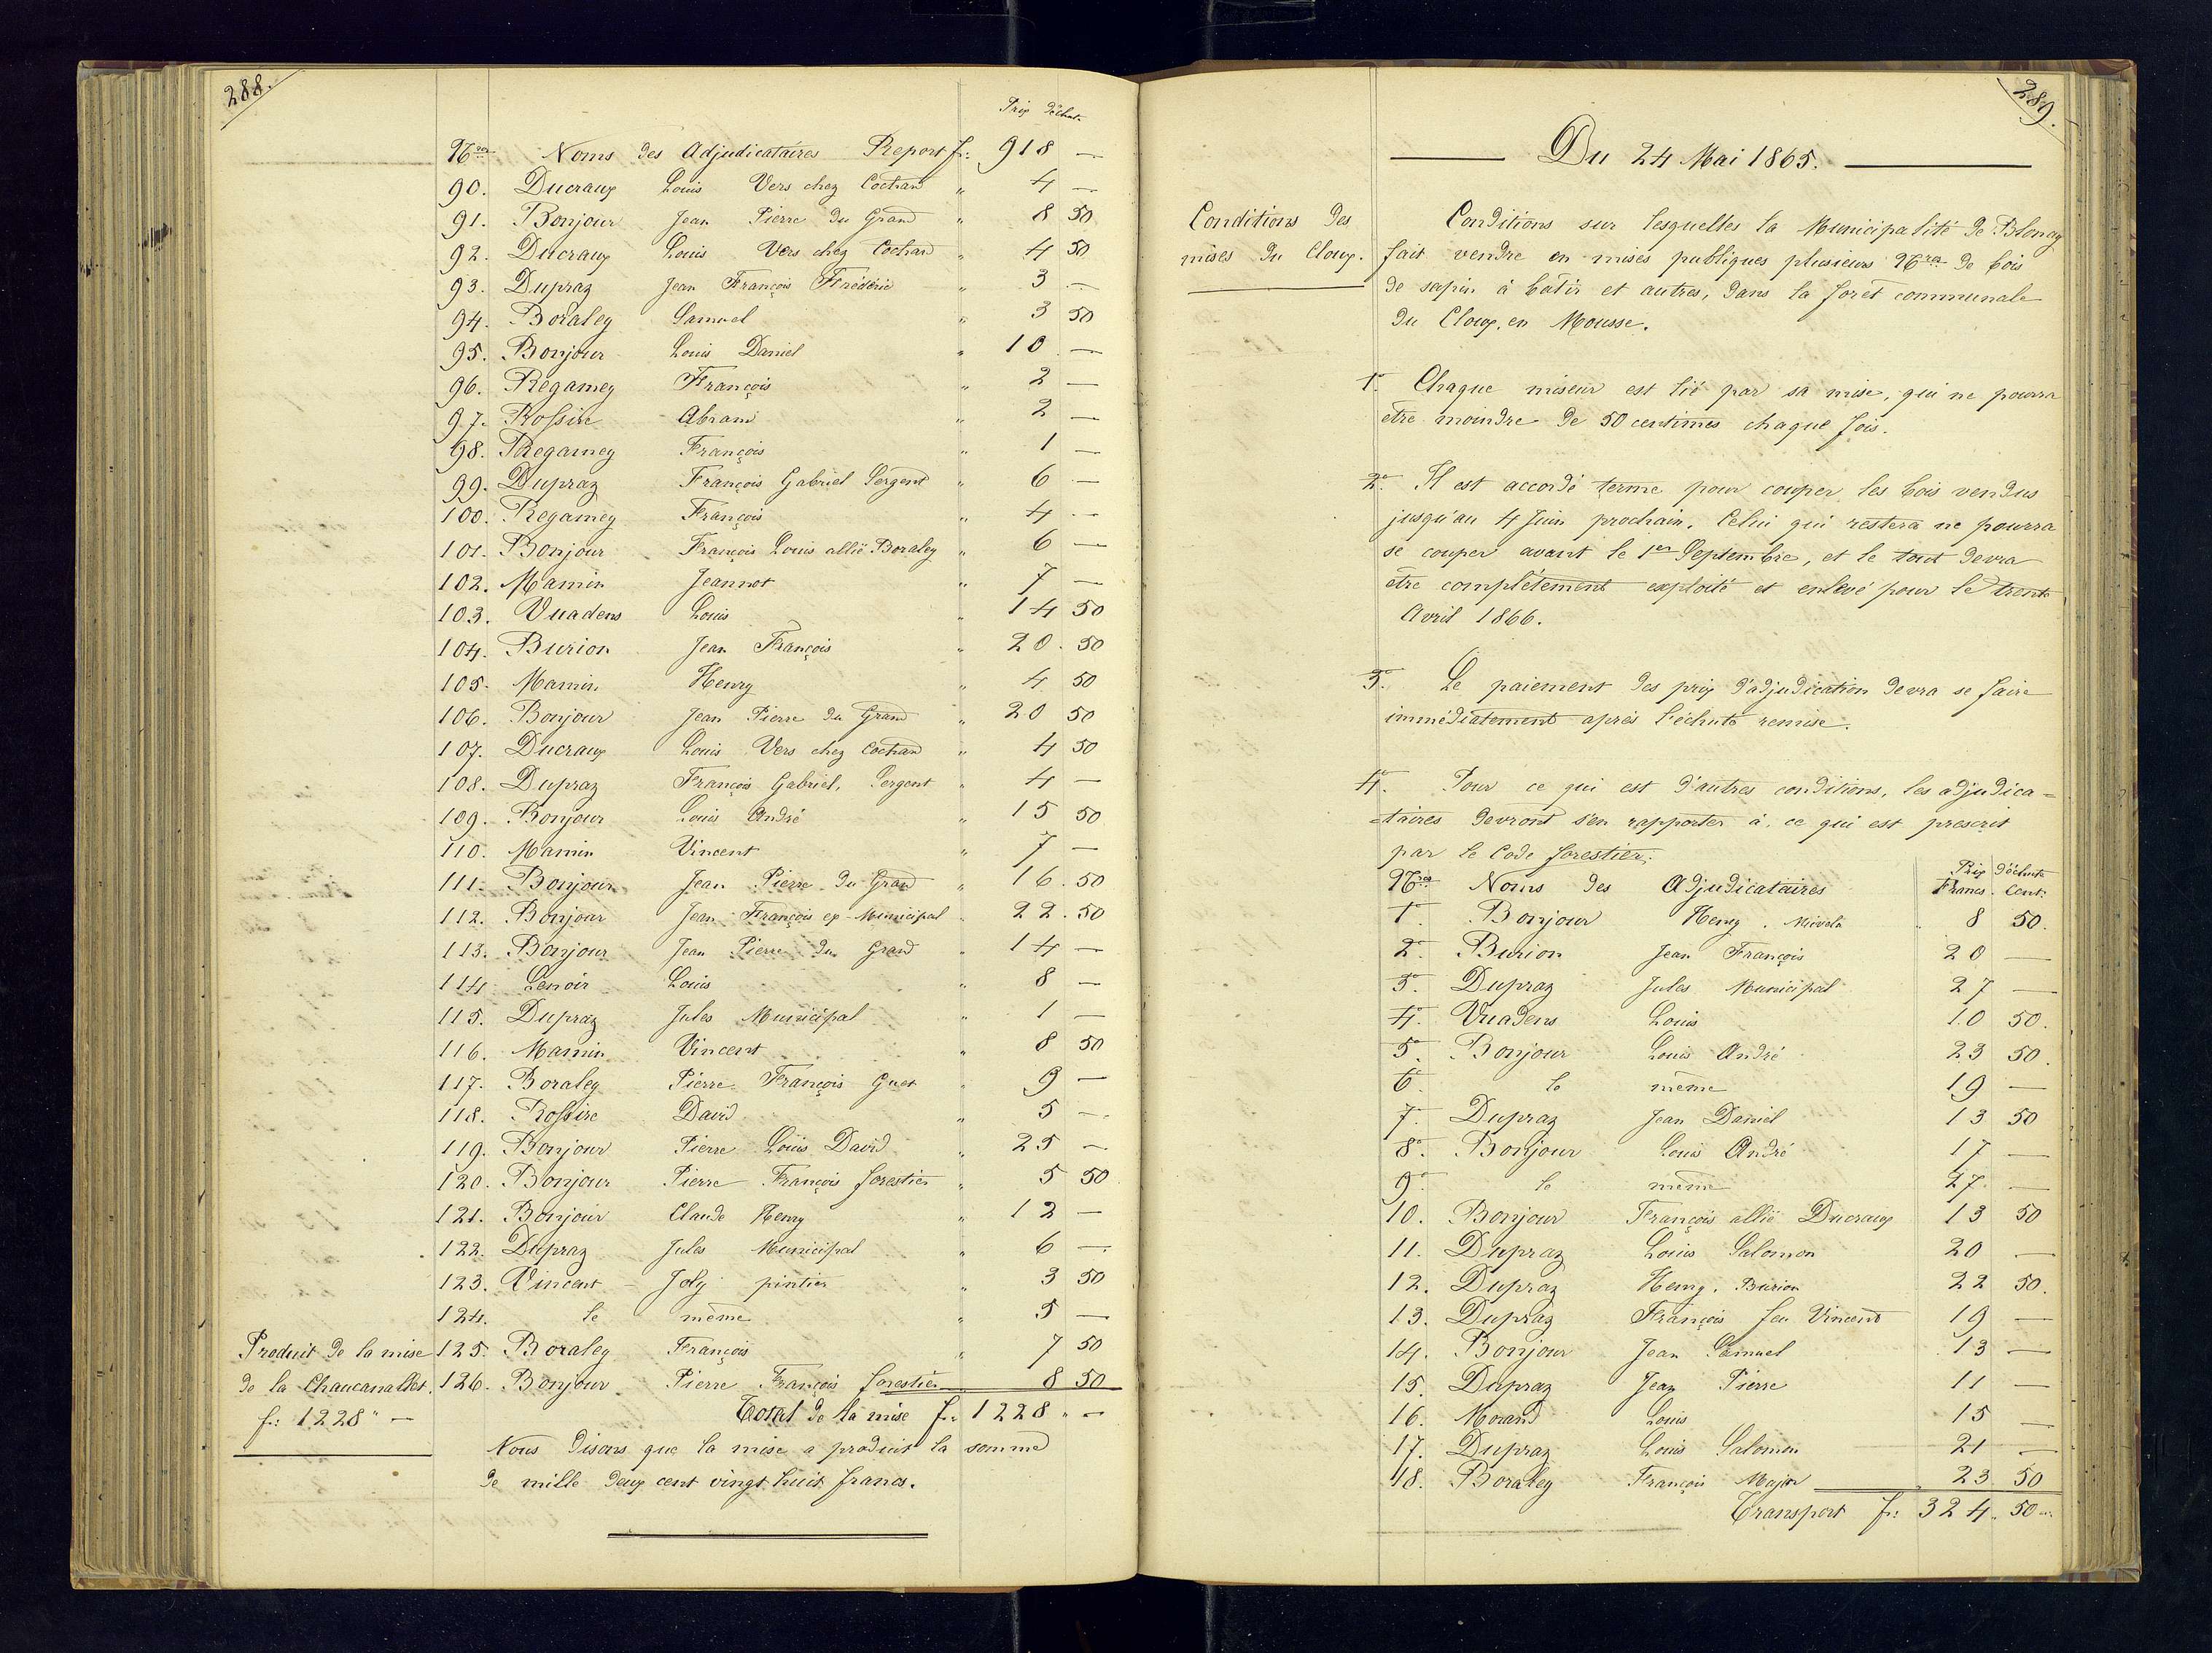 288.
Prix d'échute
Nros Noms des Adjudicataires Report fr: 918 —
90. Ducraux Louis Vers chez Cochard " 4 —
91. Bonjour Jean Pierre du Grand " 8 50
92. Ducraux Louis Vers chez Cochard " 4 50
93. Dupraz Jean François Frédéric " 3 —
94. Boraley Samuel " 3 50
95. Bonjour Louis Daniel " 10 —
96. Regamey François " 2 —
97. Rossire Abram " 2 —
98. Regamey François " 1 —
99. Dupraz François Gabriel Sergent " 6 —
100. Regamey François " 4 —
101. Bonjour François Louis allié Boraley " 6 —
102. Mamin Jeannot " 7 —
103. Vuadens Louis " 14 50
104. Burion Jean François " 20 50
105. Mamin Henry " 4 50
106. Bonjour Jean Pierre du Grand " 20 50
107. Ducraux Louis Vers chez Cochard " 4 50
108. Dupraz François Gabriel, Sergent " 4 —
109. Bonjour Louis André " 15 50
110. Mamin Vincent " 7 —
111. Bonjour Jean Pierre du Grand " 16 50
112. Bonjour Jean François ex-Municipal " 22 50
113. Bonjour Jean Pierre du Grand " 14 —
114. Lenoir Louis " 8 —
115. Dupraz Jules Municipal " 1 —
116. Mamin Vincent " 8 50
117. Boraley Pierre François Guet " 9 —
118. Rossire David " 5 —
119. Bonjour Pierre Louis David " 25 —
120. Bonjour Pierre François forestier " 5 50
121. Bonjour Claude Henry " 12 —
122. Dupraz Jules Municipal " 6 —
123. Vincent Joly pintier " 3 50
124. le même " 5 —
Produit de la mise 125. Boraley François " 7 50
de la Chaucanallet. 126. Bonjour Pierre François forestier 8 50
f: 1228 " — Total de la mise fr: 1228 " —
Nous disons que la mise a produit la somme
de mille deux cent vingt huit francs.
289.
Du 24 Mai 1865.
Conditions des
mises du Cloux.
Conditions sur lesquelles la Municipalité de Blonay
fait vendre en mises publiques plusieurs Nros de bois
de sapin à bâtir et autres, dans la forêt communale
du Cloux, en Mousse.
1° Chaque miseur est lié par sa mise, qui ne pourra
être moindre de 50 centimes chaque fois.
2° Il est accordé terme pour couper les bois vendus
jusqu'au 4 Juin prochain. Celui qui restera ne pourra
se couper avant le 1er Septembre, et le tout devra
être complètement exploité et enlevé pour le trente
Avril 1866.
3° Le paiement des prix d'adjudication devra se faire
immédiatement après l'échute remise.
4° Pour ce qui est d'autres conditions, les adjudica=
=taires devront s'en rapporter à ce qui est prescrit
par le Code forestier.
Prix d'échute
Nros Noms des Adjudicataires Francs. Cent:
1° Bonjour Henry. 8 50.
2° Burion Jean François 20 —
3° Dupraz Jules Municipal 27 —
4° Vuadens Louis 10 50.
5° Bonjour Louis André 23 50.
6° le même 19 —
7° Dupraz Jean Daniel 13 50
8° Bonjour Louis André 17 —
9° le même 27 —
10. Bonjour François allié Ducraux 13 50
11. Dupraz Louis Salomon 20 —
12. Dupraz Henry. Burion 22 50.
13. Dupraz François feu Vincent 19 —
14. Bonjour Jean Samuel 13 —
15. Dupraz Jean Pierre 11 —
16. Morand Louis 15 —
17. Dupraz Louis Salomon 21 —
18. Boraley François Major 23 50
Transport fr: 324. 50